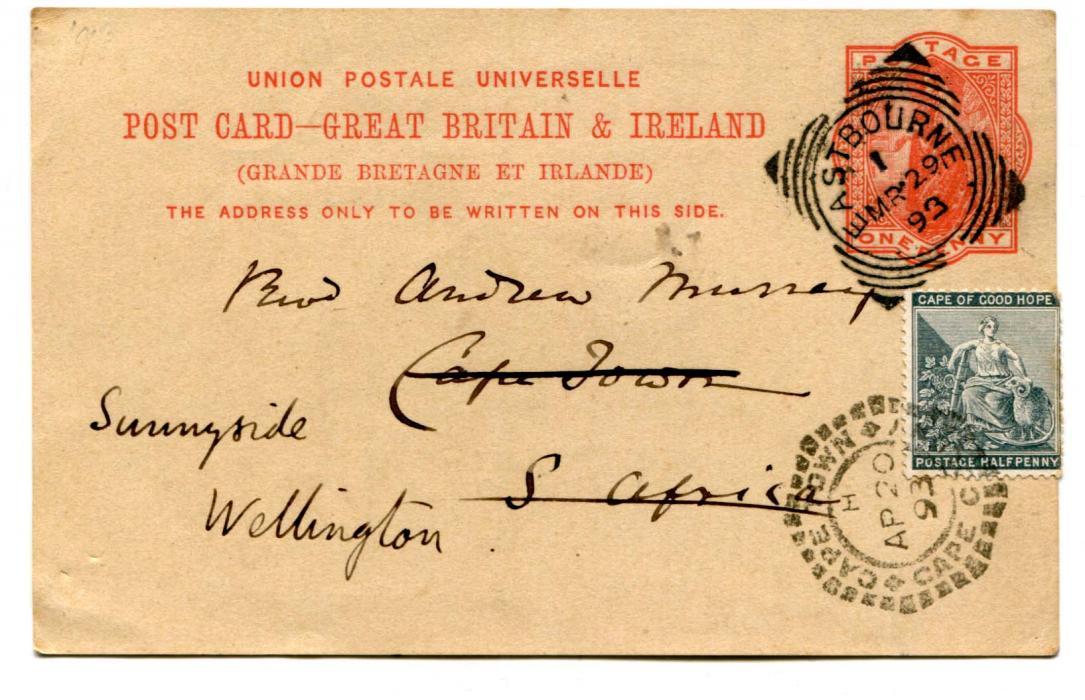 UNION POSTALE UNIVERSELLE
POST CARD—GREAT BRITAIN & IRELAND
(GRANDE BRETAGNE ET IRLANDE)
THE ADDRESS ONLY TO BE WRITTEN ON THIS SIDE.
POSTAGE
ONE PENNY
EASTBOURNE
1
MR 29
93
Revd Andrew Murray
Cape Town
S Africa
Sunnyside
Wellington.
CAPE OF GOOD HOPE
POSTAGE HALFPENNY
CAPE TOWN
H
AP 20
93
CAPE